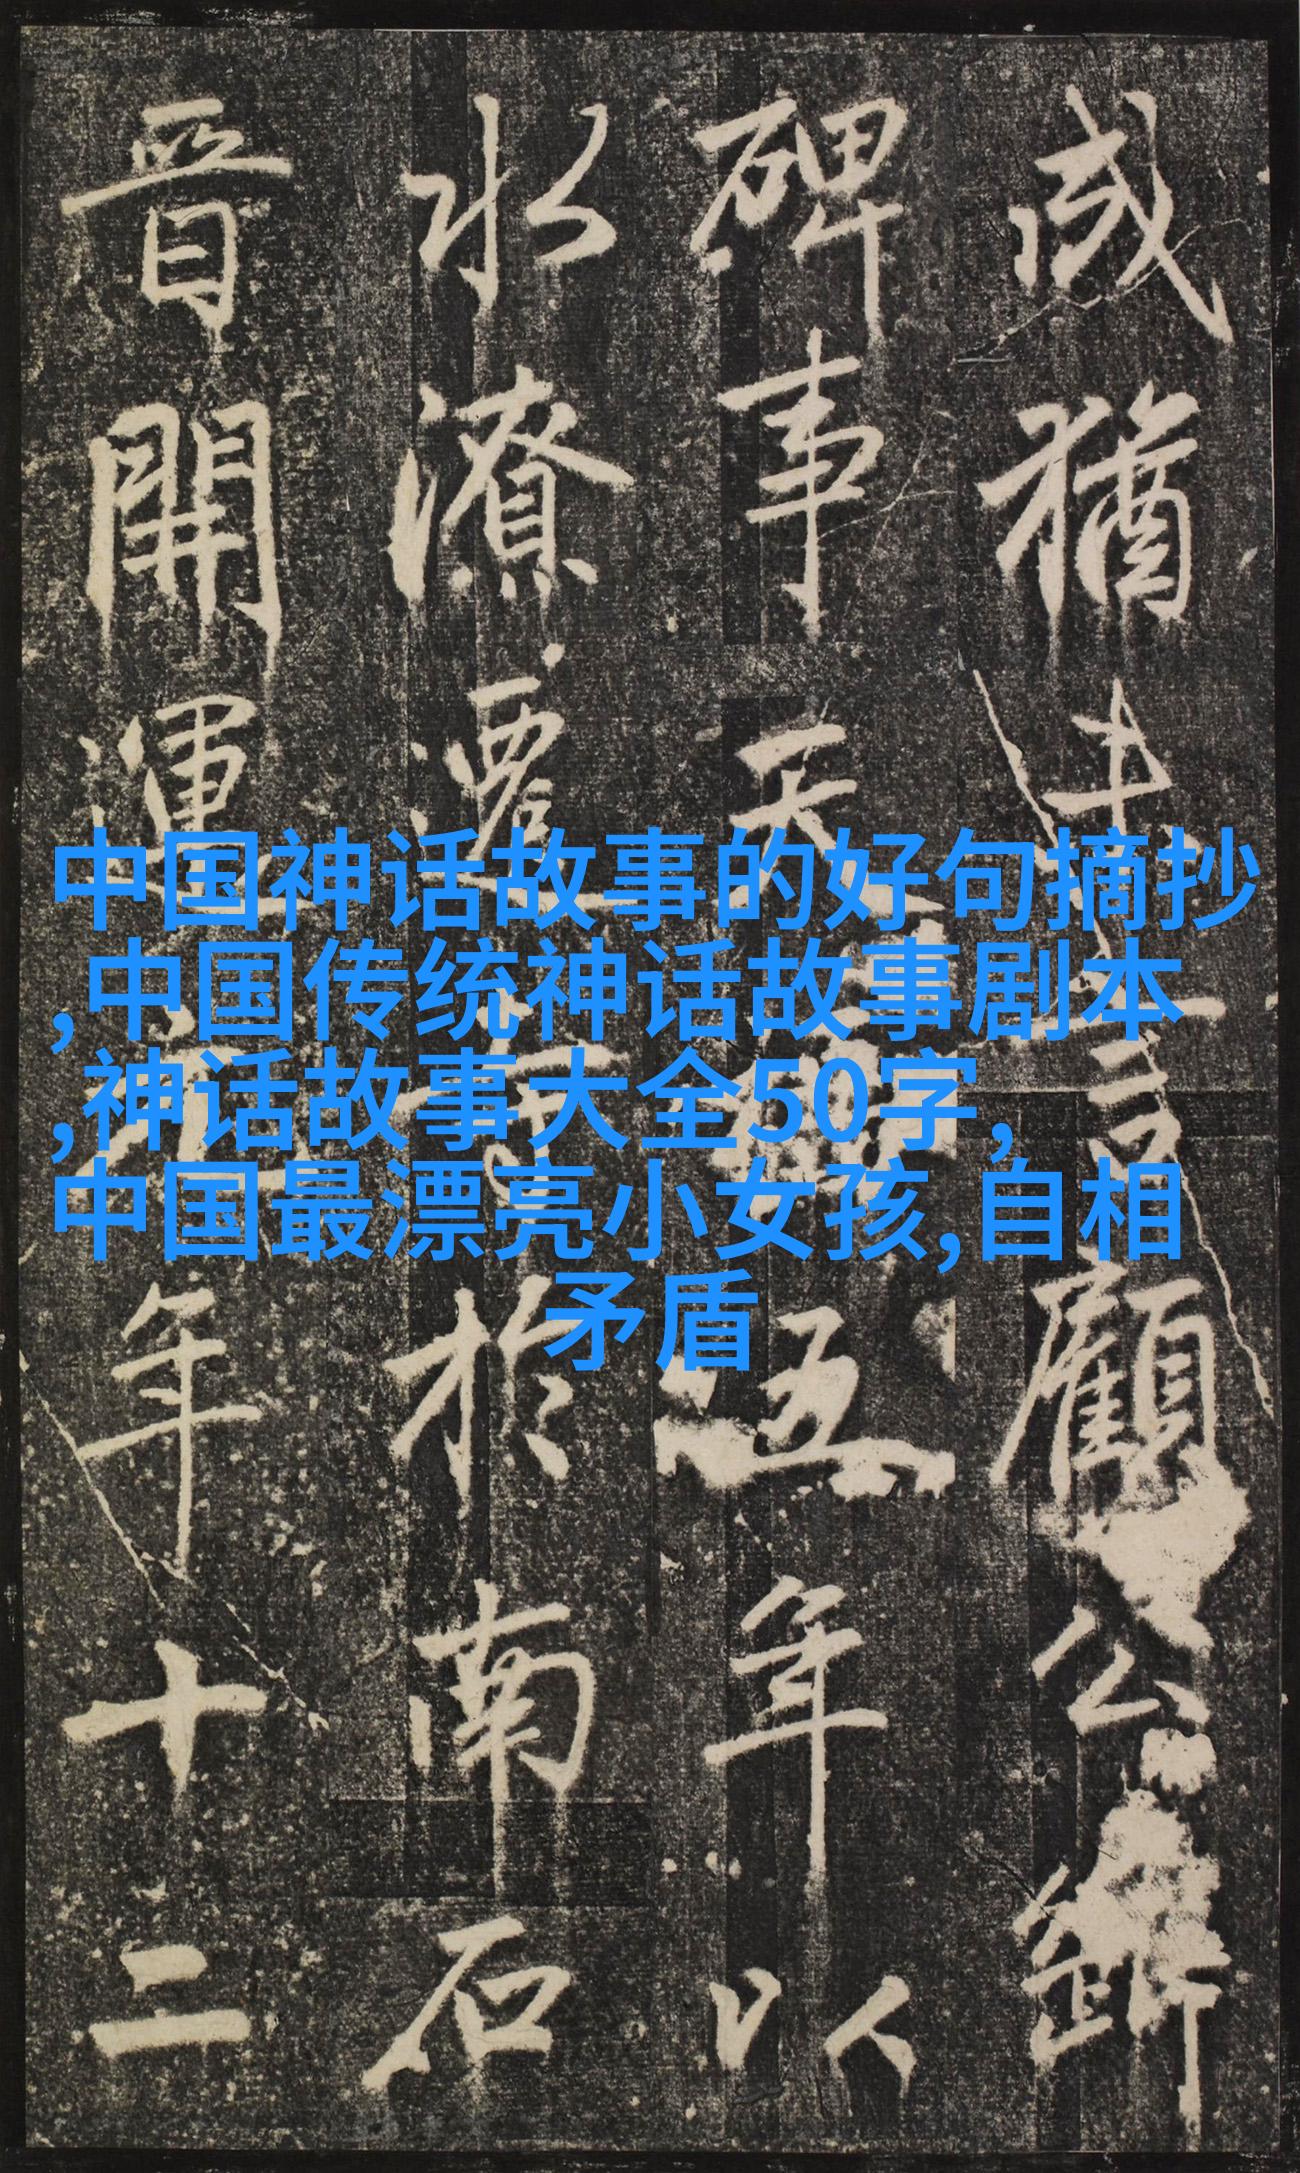 中国神话故事的好句摘抄
,中国传统神话故事剧本
,神话故事大全50字,
中国最漂亮小女孩,自相
矛盾
猶言顧公
碑事天五年以
水潦遷於南石
晉開運年十二